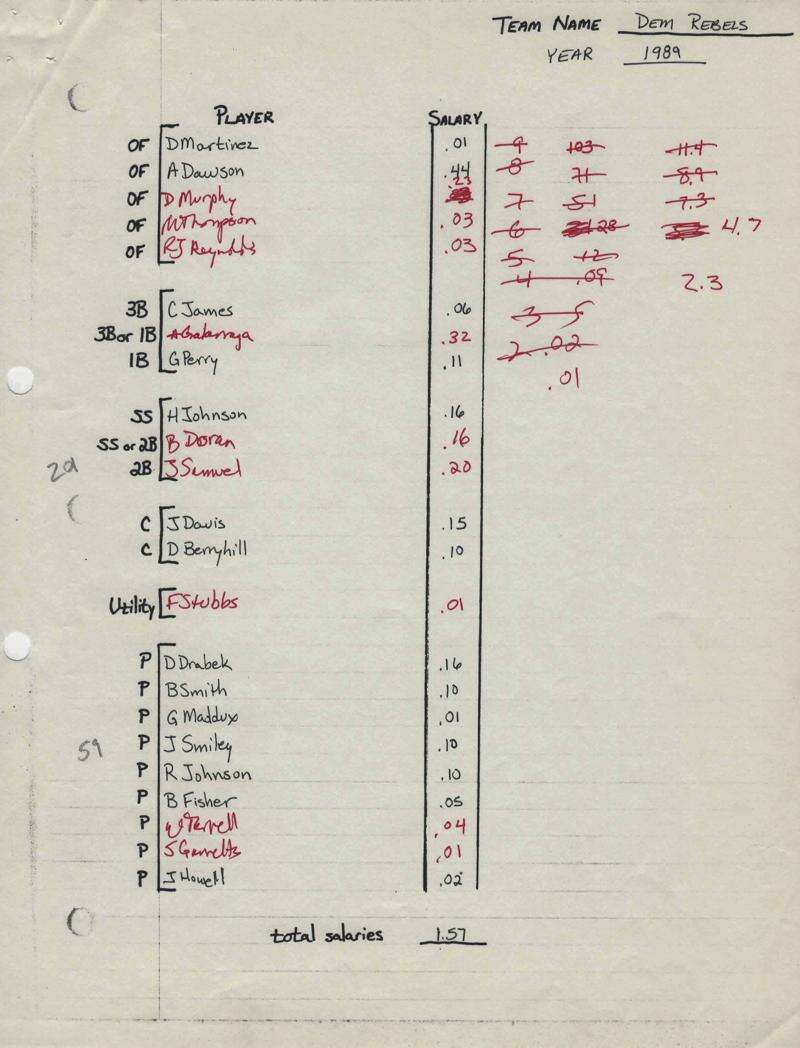 TEAM NAME DEM REBELS
YEAR 1989
PLAYER SALARY
OF D Martinez .01 9 103 11.4
OF A Dawson .44 8 71 8.9
OF D Murphy .23 7 51 7.3
OF M Thompson .03 6 28 4.7
OF RJ Reynolds .03 5 12
4 .09 2.3
3B C James .06 3 5
3B or 1B A Galarraga .32
1B G Perry .11 2 .02
.01
SS H Johnson .16
SS or 2B B Doran .16
2d 2B J Samuel .20
C J Davis .15
C D Berryhill .10
Utility F Stubbs .01
P D Drabek .16
P B Smith .10
P G Maddux .01
59 P J Smiley .10
P R Johnson .10
P B Fisher .05
P W Terrell .04
P S Garrelts .01
P J Howell .02
total salaries 1.57